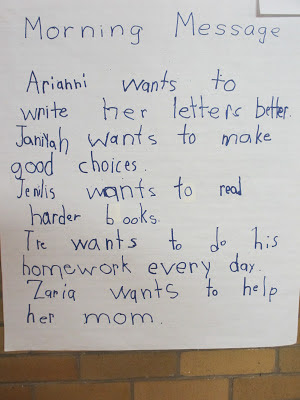 Morning Message
Arianni wants to
write her letters better.
Janiyah wants to make
good choices.
Jenilis wants to read
harder books.
Tre wants to do his
homework every day.
Zaria wants to help
her mom.